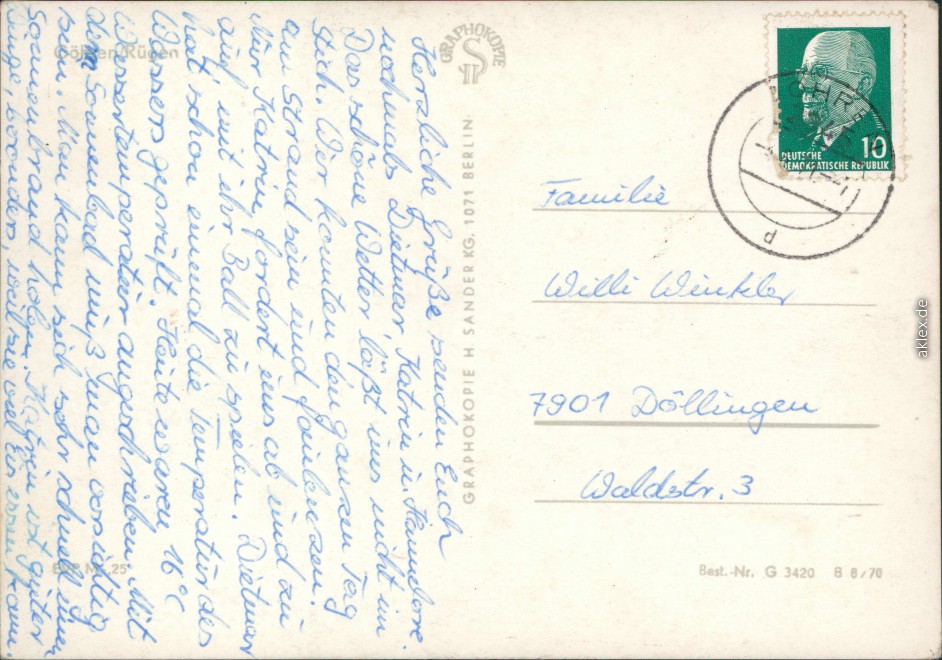 Göhren/Rügen
Herzliche Grüße senden Euch
nochmals Dietmar, Katrin u. Hannelore.
Das schöne Wetter läßt uns nicht im
Stich. Wir konnten den ganzen Tag
am Strand sein und faulenzen.
Nur Katrin fordert uns ab und zu
auf mit ihr Ball zu spielen. Dietmar
hat schon einmal die Temperatur des
Wassers geprüft. Heute waren 16°C
Wassertemperatur angeschrieben. Mit
dem Sonnenbad muß man vorsichtig
sein. Man kann sich sehr schnell einen
Sonnenbrand holen. Katrin ist guter
Dinge, besonders, weil sie viel Eis essen kann.
EVP M -,25
GRAPHOKOPIE
GRAPHOKOPIE H. SANDER KG. 1071 BERLIN
DEUTSCHE
DEMOKRATISCHE REPUBLIK
10
Familie
Willi Winkler
7901 Döllingen
Waldstr. 3
Best.-Nr. G 3420 B 8/70
aklex.de